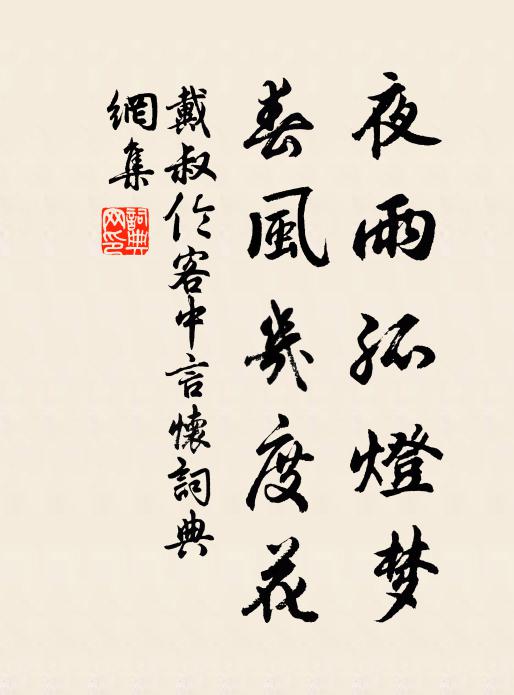 夜雨孤燈梦
春風幾度花
戴叔伦客中言懷詞典
網集
詞典网印